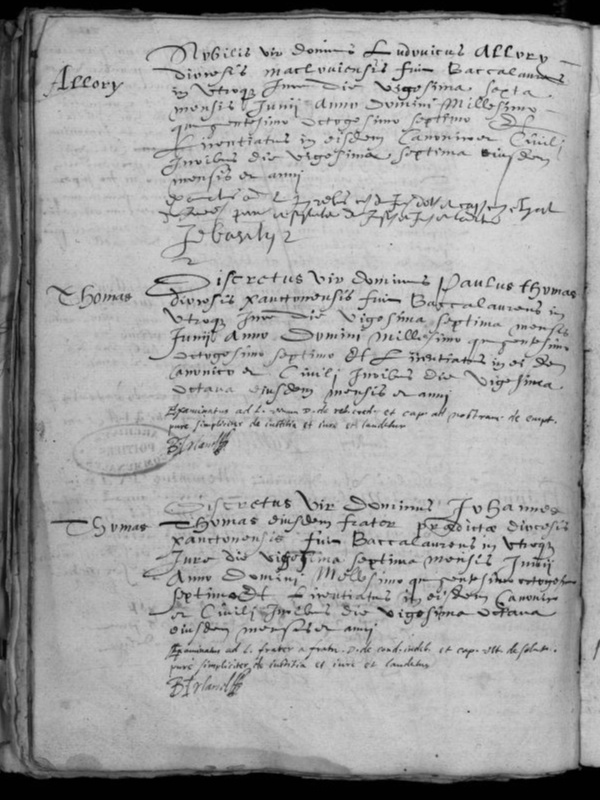 Allory
Nobilis vir dominus Ludovicus Allory
diocesis macloviensis fuit Baccalaureus
in utroq Jure die vigesima septa
mensis Junii anno domini Millesimo
quingentesimo octogesimo septimo Et
Licentiatus in eisdem Canonico et Civili
Juribus die vigesima septima eiusdem
mensis et anni
Thomas
Discretus vir dominus Paulus Thomas
diocesis xanctonensis fuit Baccalaureus in
utroq Jure die vigesima septima mensis
Junii Anno Domini Millesimo quingentesimo
octogesimo septimo Et Licentiatus in eisdem
Canonico et Civili Juribus die vigesima
octava eiusdem mensis et anni
Examinatus ad L. D. de reb. cred. et cap. ad nostram de empt.
pure simpliciter de iustitia et iure et laudetur
Thomas
Discretus vir Dominus Johannes
Thomas eiusdem frater prædictæ diocesis
xanctonensis fuit Baccalaureus in utroq
Jure die vigesima septima mensis Junii
Anno Domini Millesimo quingentesimo octogesimo
septimo Et Licentiatus in eisdem Canonico
et Civili Juribus die vigesima octava
eiusdem mensis et anni
Examinatus ad L. frater a fratre D. de condict. indeb. et cap. ult. de solut.
pure simpliciter de iustitia et iure et laudetur